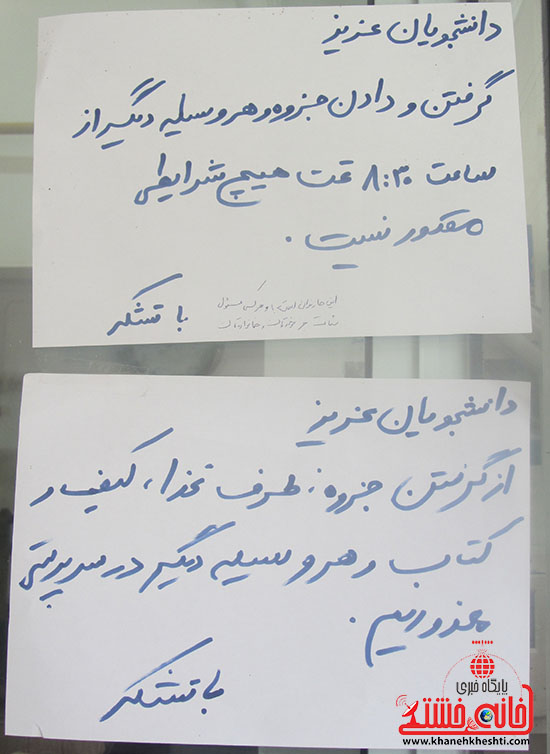 دانشجویان عزیز
گرفتن و دادن جزوه و هر وسیله دیگر از
ساعت ۸:۳۰ تحت هیچ شرایطی
مقدور نسیت.
با تشکر
دانشجویان عزیز
از گرفتن جزوه، ظرف غذا، کیف و
کتاب و هر وسیله دیگر در سرپرستی
معذوریم.
با تشکر
پایگاه خبری
خانه خشتی
www.khanehkheshti.com